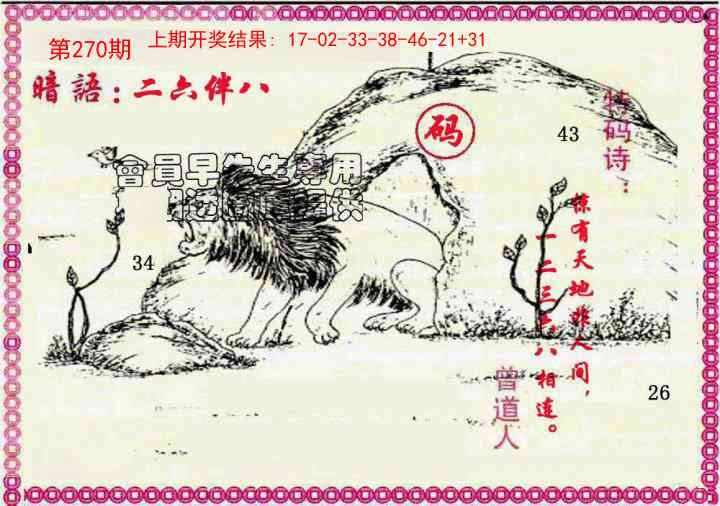 第270期
上期开奖结果: 17-02-33-38-46-21+31
暗語:二六伴八
特码诗:
码
43
會員早先生專用
提供
34
有天地非人间,
一二三六八相连。
曾道人
26